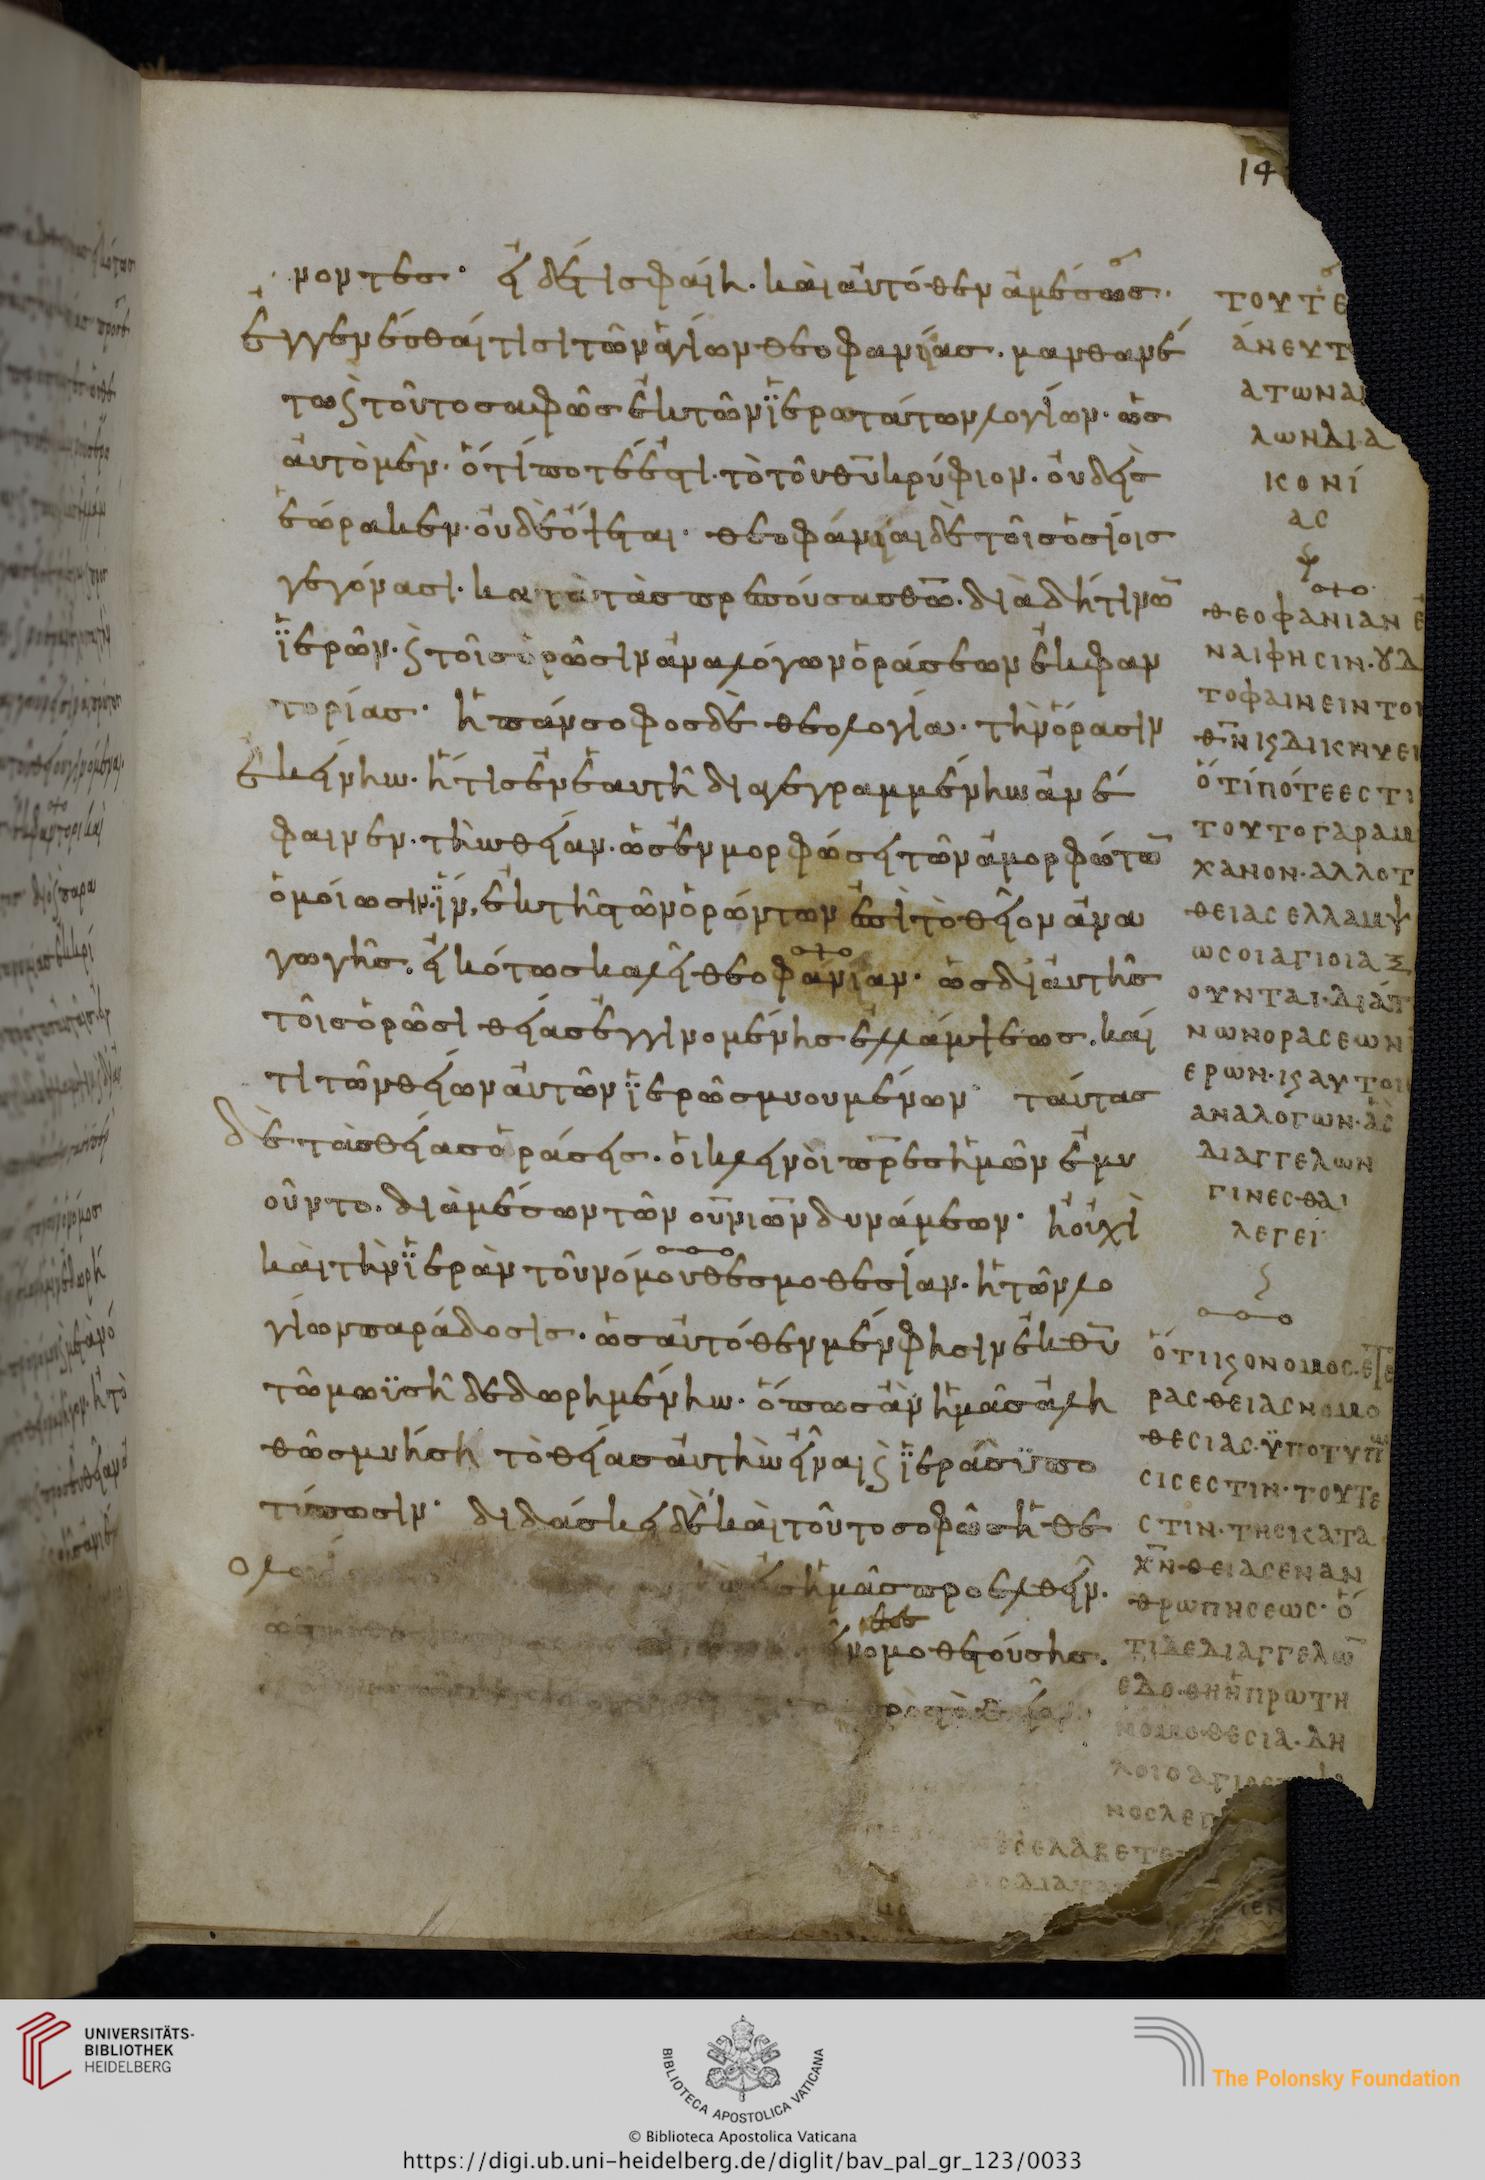 14
νοντες· εἰ δέ τις φαίη· καὶ αὐτόθεν ἀμέσως·
ἐγγενέσθαί τισι τῶν ἁγίων θεοφανείας· μανθανέ
τω ϛ τοῦτο σαφῶς ἐκ τῶν ϊερωτάτων λογίων· ὡς
αὐτὸ μὲν· ὅτί ποτέ ἐστι· τὸ τοῦ θῦ κρύφιον· οὐδεὶς
ἑώρακεν· οὐδὲ ὄψεται· θεοφάνειαι δὲ τοῖς ὁσίοις
γεγόνασι· κατὰ τὰς πρεπούσας θω· διὰ δή τινω
ϊερῶν· ϛ τοῖς ὁρῶσιν ἀναλόγων ὁράσεων ἐκφαν
τορίας· ἡ πάνσοφος δὲ θεολογία· τὴν ὅρασιν
ἐκείνην· ἥτις ἐν ἑαυτῆ διαγεγραμμένην ἀνέ
φαινεν· τὴν θείαν· ὡς ἐν μορφώσει τῶν ἀμορφώτω
ὁμοίωσιν· ἐκ τῆς τῶν ὁρώντων ἐπὶ τὸ θεῖον ἀνα
γωγῆς· εἰκότως καλεῖ θεοφανίαν· ὡς δι αὐτῆς
τοῖς ὁρῶσι θείας ἐγγινομένης ἐλλάμψεως· καί
τι τῶν θείων αὐτῶν ϊερῶς μυουμένων· ταύτας
δὲ τὰς θείας ὁράσεις· οἱ κλεινοὶ πρες ἡμῶν ἐμυ
οῦντο· διὰ μέσων τῶν οὐνιων δυνάμεων· ἢ οὐχὶ
καὶ τὴν ϊερὰν τοῦ νόμου θεσμοθεσίαν· ἡ τῶν λο
γίων παράδοσις· ὡς αὐτόθεν μέν φησιν ἐκ θυ
τῶ μωϋσῆ δεδωρημένην· ὅπως ἂν ἡμᾶς ἀλη
θῶς μυήση τὸ θείας αὐτὴν εἶναι ϛ ϊερᾶς ϋπο
τύπωσιν· διδάσκει δὲ καὶ τοῦτο σοφῶς ἡ θε
ολο ἡμᾶς προελθεῖν·
νομοθετούσης·
ΤΟΥΤΕ
ΑΝΕΥΤ
ΑΤΩΝΑ
ΛΩΝΔΙΑ
ΚΟΝΙ
ΑΣ
ΘΕΟΦΑΝΙΑΝ
ΝΑΙΦΗΣΙΝ·ΟΥΔ
ΤΟΦΑΙΝΕΙΝΤΟΝ
ΘΝΙϚΔΙΚΝΥΕΙ
ΟΤΙΠΟΤΕΕΣΤΙ
ΤΟΥΤΟΓΑΡΑΜ
ΧΑΝΟΝ·ΑΛΛΟΤ
ΘΕΙΑΣΕΛΛΑΜΨ
ΩΣΟΙΑΓΙΟΙΑΞ
ΟΥΝΤΑΙ·ΔΙΑΤ
ΝΩΝΟΡΑΣΕΩΝ
ΕΡΩΝ·ΙϚΑΥΤΟΙ
ΑΝΑΛΟΓΩΝ·ΑΣ
ΔΙΑΓΓΕΛΩΝ
ΓΙΝΕΣΘΑΙ
ΛΕΓΕΙ
ΟΤΙΙϚΟΝΟΜΟΣ·ΕΤΕ
ΡΑΣΘΕΙΑΣΝΟΜΟ
ΘΕΣΙΑΣ·ΫΠΟΤΥΠ
ΣΙΣΕΣΤΙΝ·ΤΟΥΤΕ
ΣΤΙΝ·ΤΗΣΚΑΤΑ
ΧΝΘΕΙΑΣΕΝΑΝ
ΘΡΩΠΗΣΕΩΣ·Ο
ΤΙΔΕΔΙΑΓΓΕΛΩ
ΕΔΟΘΗΗΠΡΩΤΗ
ΝΟΜΟΘΕΣΙΑ·ΔΗ
ΛΟΙΟΑΓΙΟΣ
ΝΟΣΛΕΓ
ΕΛΑΒΕΤΕ
ΔΙΑΤΑ
UNIVERSITÄTS-
BIBLIOTHEK
HEIDELBERG
BIBLIOTECA APOSTOLICA VATICANA
The Polonsky Foundation
© Biblioteca Apostolica Vaticana
https://digi.ub.uni-heidelberg.de/diglit/bav_pal_gr_123/0033